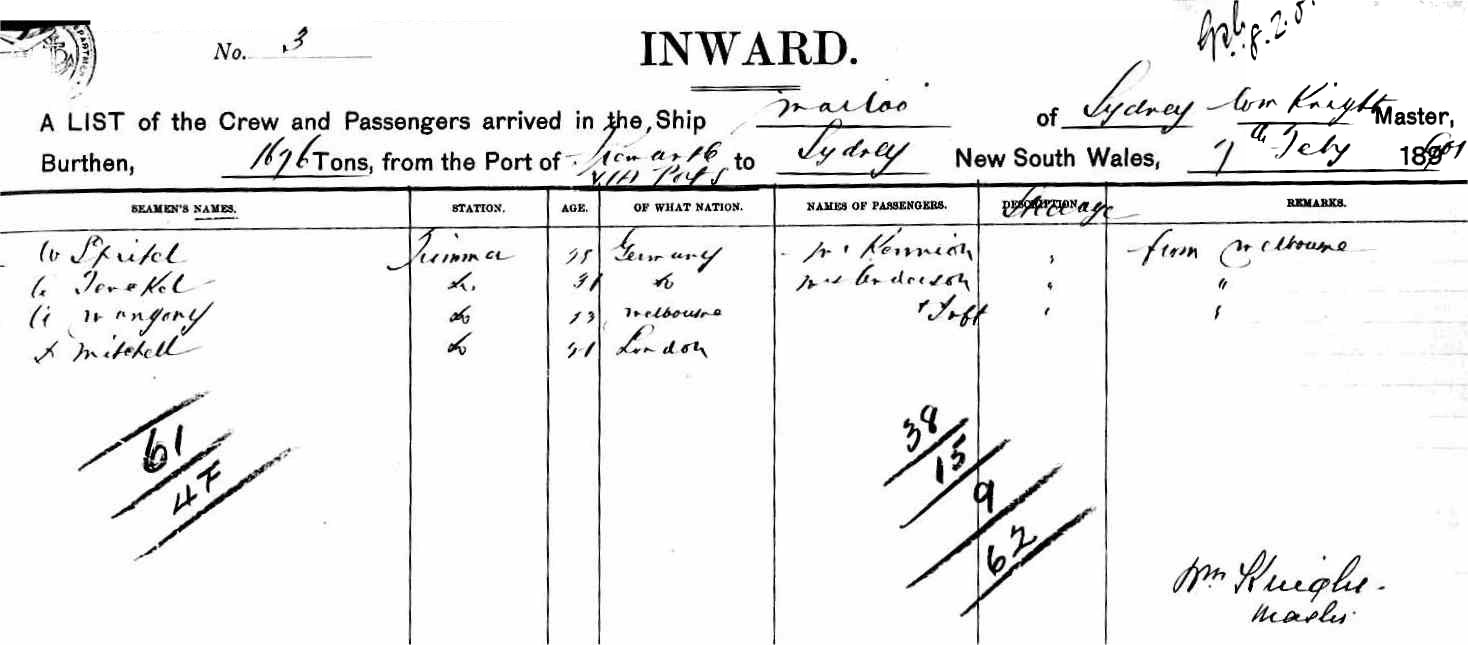 No. 3
INWARD.
A LIST of the Crew and Passengers arrived in the Ship Marloo of Sydney Wm Knight Master,
Burthen, 1696 Tons, from the Port of to Sydney New South Wales, 7th Feby 1901
via Pts
SEAMEN'S NAMES. STATION. AGE. OF WHAT NATION. NAMES OF PASSENGERS. DESCRIPTION REMARKS.
Steerage
W Trimmer Germany Mr Kennion " from Melbourne
do 31 do Mrs Anderson " "
do 23 Melbourne + Taft " "
Mitchell do 21 London
61
47
38
15
9
62
Wm Knight
Master